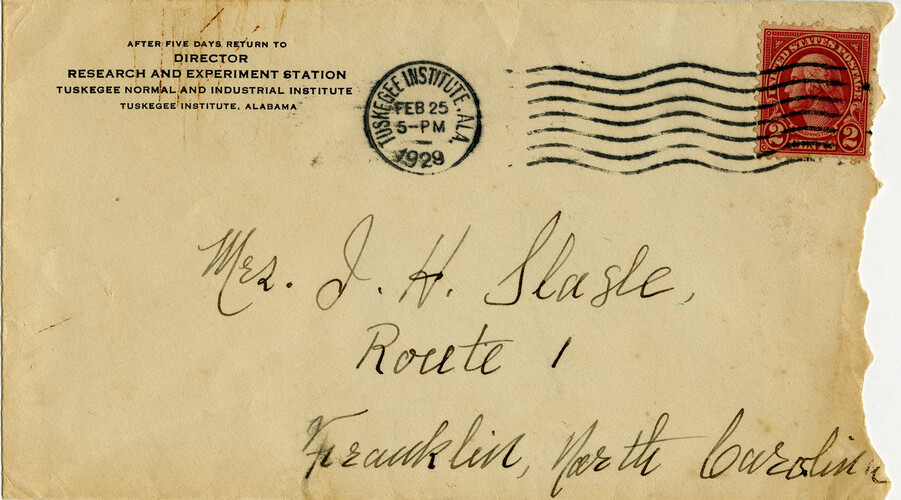 AFTER FIVE DAYS RETURN TO
DIRECTOR
RESEARCH AND EXPERIMENT STATION
TUSKEGEE NORMAL AND INDUSTRIAL INSTITUTE
TUSKEGEE INSTITUTE, ALABAMA
TUSKEGEE INSTITUTE, ALA.
FEB 25
5-PM
1929
UNITED STATES POSTAGE
2 2
Mrs. J. H. Slagle,
Route 1
Franklin, North Carolina